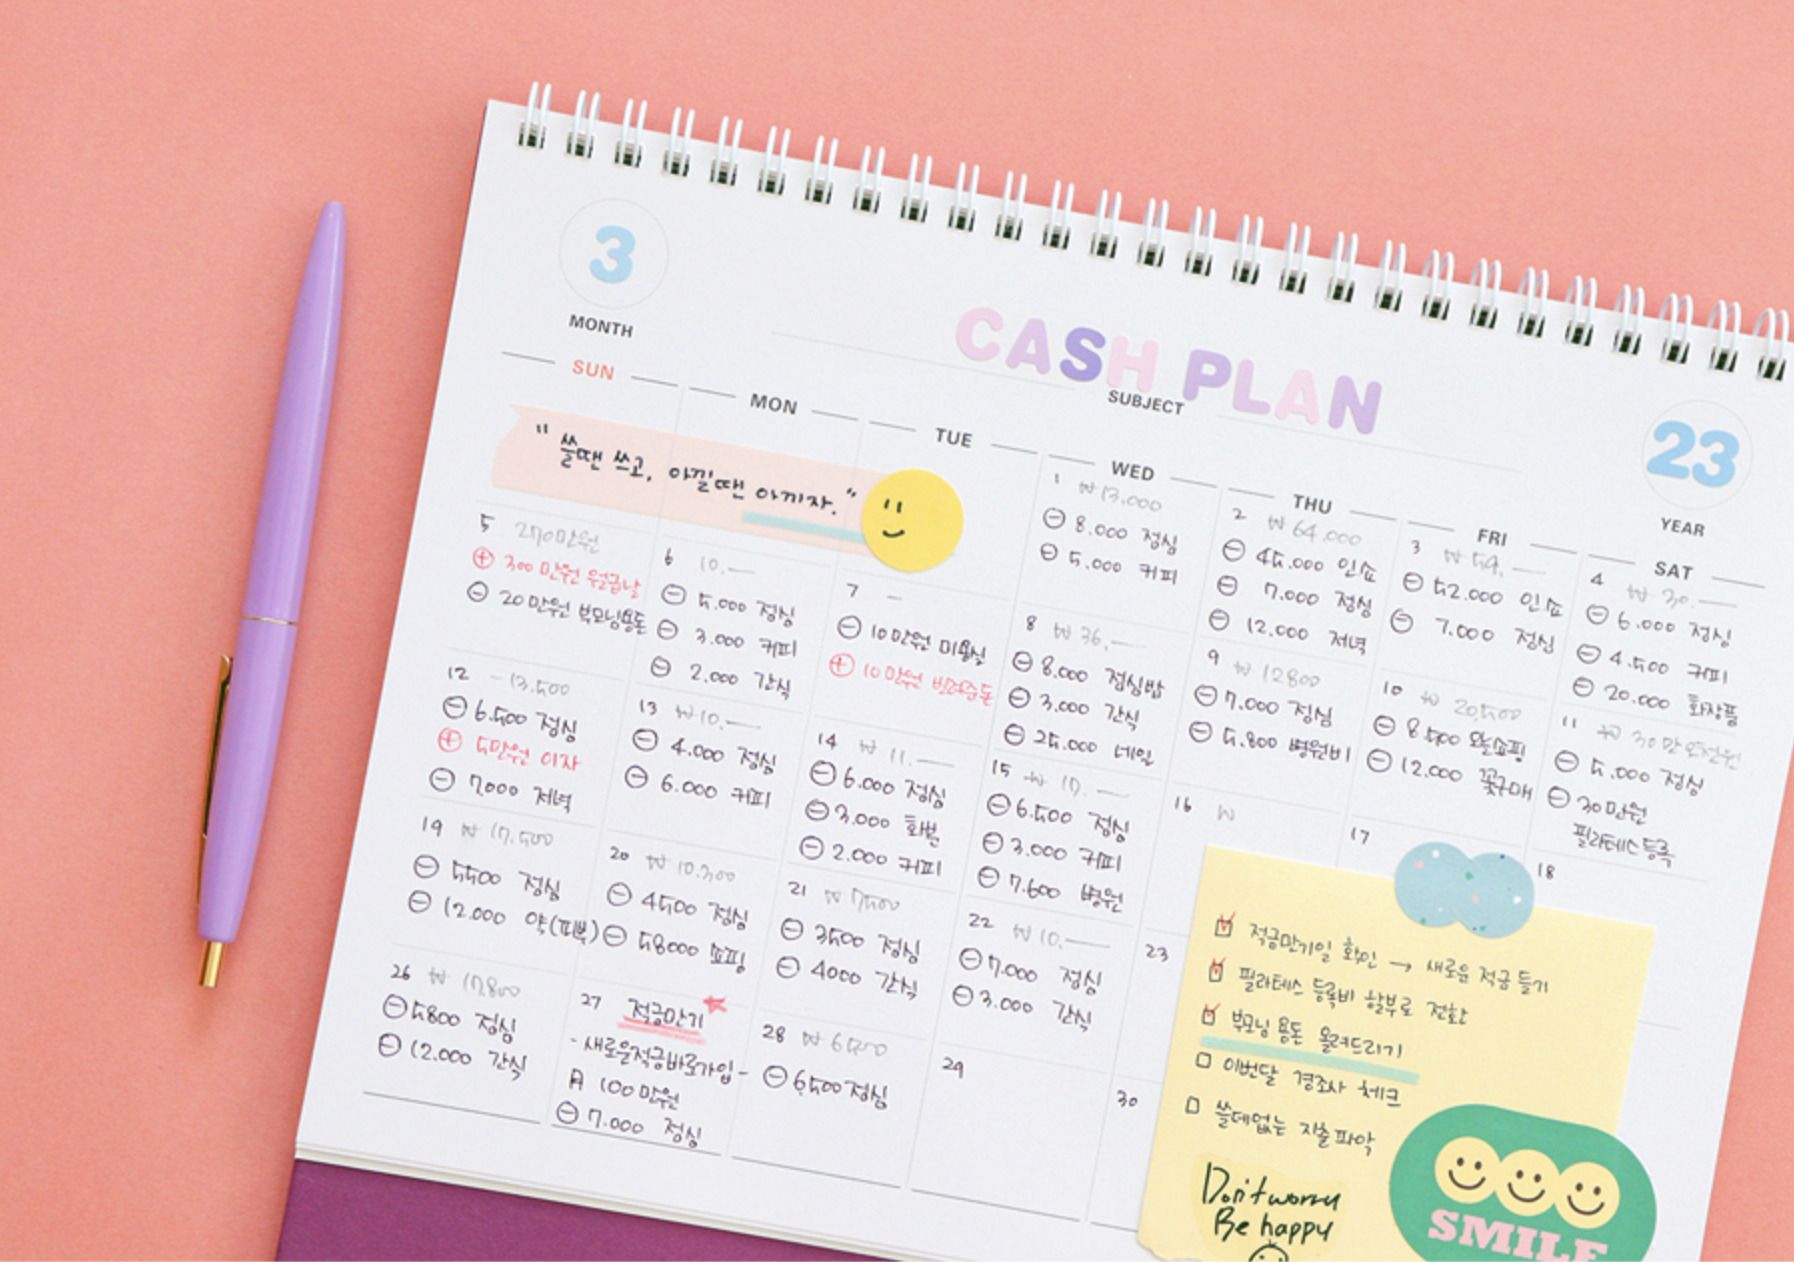 3
MONTH
CASH PLAN
SUBJECT
23
YEAR
SUN
MON
TUE
WED
THU
FRI
SAT
" 쓸땐 쓰고, 아낄땐 아끼자. "
1 ₩13.000
⊖ 8.000 점심
⊖ 5.000 커피
2 ₩64.000
⊖ 45.000 인쇼
⊖ 7.000 점심
⊖ 12.000 저녁
3 ₩59.—
⊖ 52.000 인쇼
⊖ 7.000 점심
4 ₩30.—
⊖ 6.000 점심
⊖ 4.500 커피
⊖ 20.000 화장품
5 270만원
⊕ 300만원 월급날
⊖ 20만원 부모님용돈
6 10.—
⊖ 5.000 점심
⊖ 3.000 커피
⊖ 2.000 간식
7 —
⊖ 10만원 미용실
⊕ 10만원 빌려준돈
8 ₩36.—
⊖ 8.000 점심밥
⊖ 3.000 간식
⊖ 25.000 네일
9 ₩12800
⊖ 7.000 점심
⊖ 5.800 병원비
10 ₩20,500
⊖ 8.500 올논쇼핑
⊖ 12.000 꽃구매
11 ₩30만
⊖ 5.000 점심
⊖ 30만원
필라테스등록
12 -13.500
⊖ 6.500 점심
⊕ 5만원 이자
⊖ 7.000 저녁
13 ₩10.—
⊖ 4.000 점심
⊖ 6.000 커피
14 ₩11.—
⊖ 6.000 점심
⊖ 3.000 화분
⊖ 2.000 커피
15 ₩17.—
⊖ 6.500 점심
⊖ 3.000 커피
⊖ 7.600 병원
16 ₩
17
18
19 ₩17.500
⊖ 5500 점심
⊖ 12.000 약(피부)
20 ₩10.300
⊖ 4500 점심
⊖ 58000 쇼핑
21 ₩7500
⊖ 3500 점심
⊖ 4000 간식
22 ₩10.—
⊖ 7.000 점심
⊖ 3.000 간식
23
26 ₩17.800
⊖ 5800 점심
⊖ 12.000 간식
27 적금만기
- 새로운적금바로가입 -
A 100만원
⊖ 7.000 점심
28 ₩6500
⊖ 6,500 점심
29
30
적금만기일 확인 → 새로운 적금 들기
필라테스 등록비 할부로 전환
부모님 용돈 올려드리기
이번달 경조사 체크
쓸데없는 지출 파악
Don't worry
Be happy
SMILE